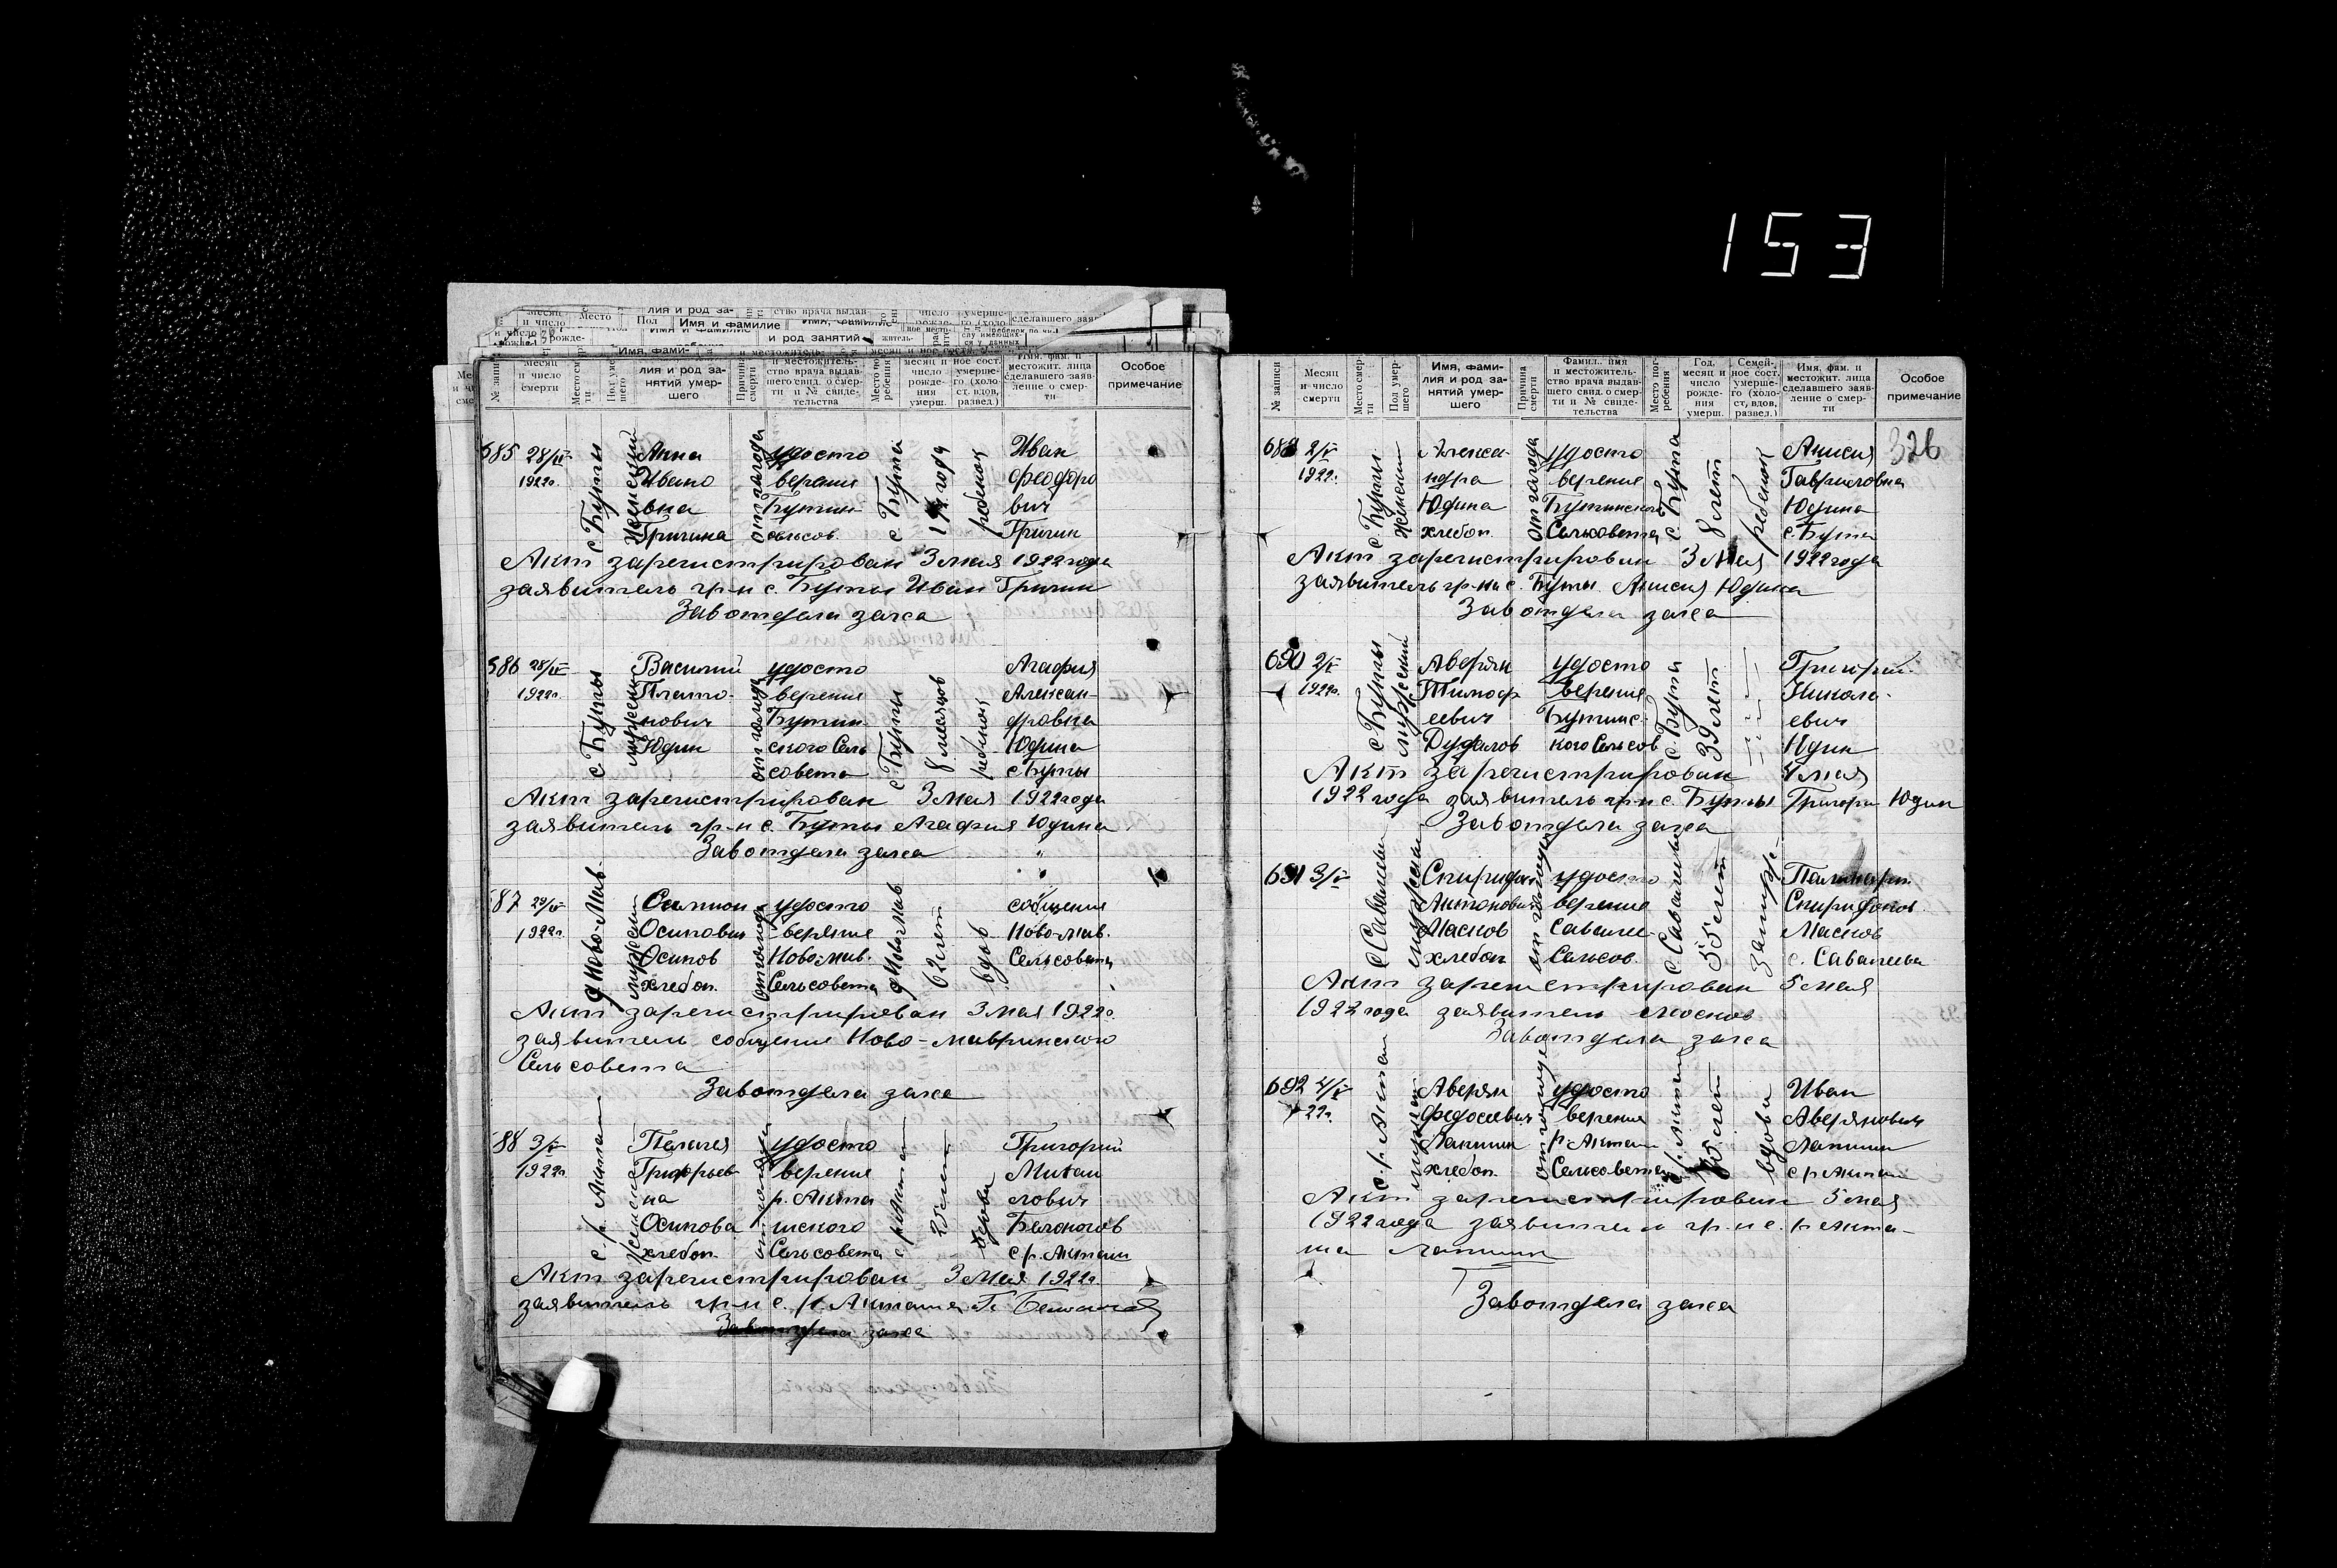 153
326
№ записи
Месяц и число смерти
Место смерти
Пол умершего
Имя, фамилия и род занятий умершего
Причина смерти
Фамил., имя и местожительство врача выдавшего свид. о смерти и № свидетельства
Место погребения
Год, месяц и число рождения умерш.
Семейное сост. умершего (холост, вдов, развед.)
Имя, фам. и местожит. лица сделавшего заявление о смерти
Особое примечание
585 28/IV 1922г.
с Буты
женский
Анна
Ивано
вна
Гришина
от голода
удосто
верение
Бутин
сельсов.
с Бута
ребенок
Иван
Феодоро
вич
Гришин
Акт зарегистрирован 3 мая 1922 года
заявитель гр-н с. Буты Иван Гришин
Завотдела загса
586 28/IV 1922г.
с. Буты
мужеск
Василий
Плато-
нович
Юдин
от голода
удосто
верение
Бутин
ского Сель
совета
с Буты
8 месяцев
ребенок
Агафия
Алексан-
дровна
Юдина
с Буты
Акт зарегистрирован 3 Мая 1922 года
заявитель гр-н с. Буты Агафия Юдина
Завотдела загса
587 29/IV 1922г.
д Ново-Мав.
мужеск
Осипович
Осипов
хлебоп.
от голода
удосто
верение
Ново мав.
Сельсовета
д Ново Мав
62 лет
вдов
сообщение
Ново-мав.
Сельсовета
Акт зарегистрирован 3 мая 1922г.
заявитель сообщение Ново-мавринского
Сельсовета
Завотдела загса
588 3/V 1922г.
с. р. Акташ
женский
Пелагея
Григорьев
на
Осипова
хлебоп.
от голода
удосто
верение
р. Акта
шского
Сельсовета
с р. Акташ
25 лет
вдова
Григорий
Михаи
лович
Белоногов
с р. Акташ
Акт зарегистрирован 3 Мая 1922г.
заявитель гр-н с. р. Акташа Г.
Завотдела загса
2/V 1922г.
с Буты
женский
Алекса-
ндра
Юдина
хлебоп.
от голода
удосто
верение
Бутинского
Сельсовета
с. Бута
8 лет
ребенок
Анисия
Гавриловна
Юдина
с. Бута
Акт зарегистрирован 3 Мая 1922 года
заявитель гр-нка с. Буты Анисия Юдина
Завотдела загса
690 2/V 1922г.
с Буты
мужеский
Аверян
Тимоф
еевич
удосто
верение
Бутинс-
кого Сельсов
с Бута
39 лет
Григорий
Никола-
евич
Юдин
Акт зарегистрирован 4 мая
1922 года заявитель гр-н с. Буты Григори Юдин
Завотдела загса
691 3/V
с Савалеи
мужеск
Спиридон
Антонович
Масков
хлебоп
от голода
удосто
верение
Савале-
Сельсов.
с Савалеи
55 лет
Спиридонов.
Масков
с. Савалеева
Акт зарегистрирован 5 мая
1922 года заявитель Москов
Завотдела загса
692 4/V 22г.
с. р. Акташ
мужеск
Аверян
Федосеевич
Лапшин
хлебоп.
от голода
удосто
верение
р. Акташ
Сельсовета
с р. Акташ
вдовы
Иван
Аверянович
Лапшин
с р Акташ
Акт зарегистрирован 5 мая
1922 года заявитель гр-н с. р Акта-
ша Лапшин
Завотдела загса